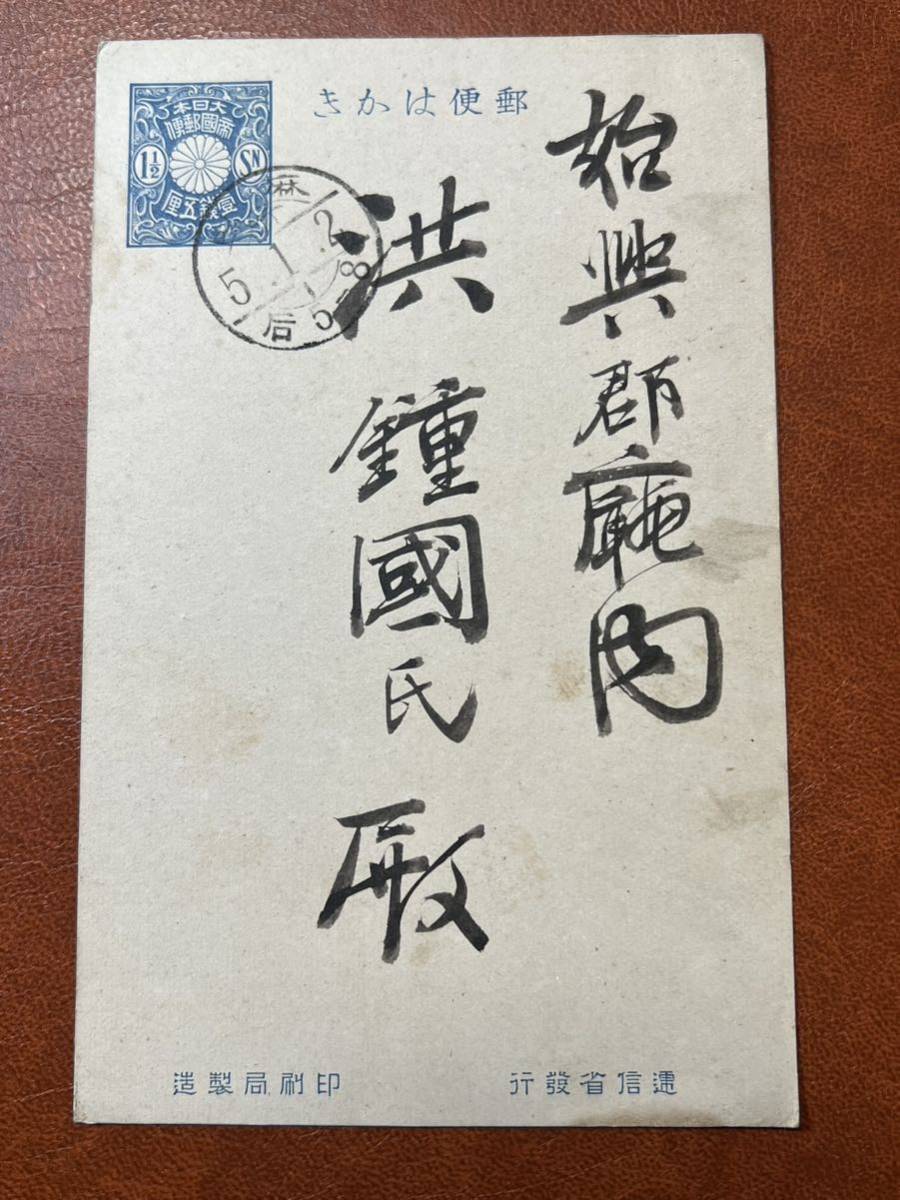 郵便はかき
大日本
帝國郵便
1½ SN
壹錢五厘
林
5.1.2
后 5-8
始興郡廳内
洪鍾國氏殿
遞信省發行
印刷局製造